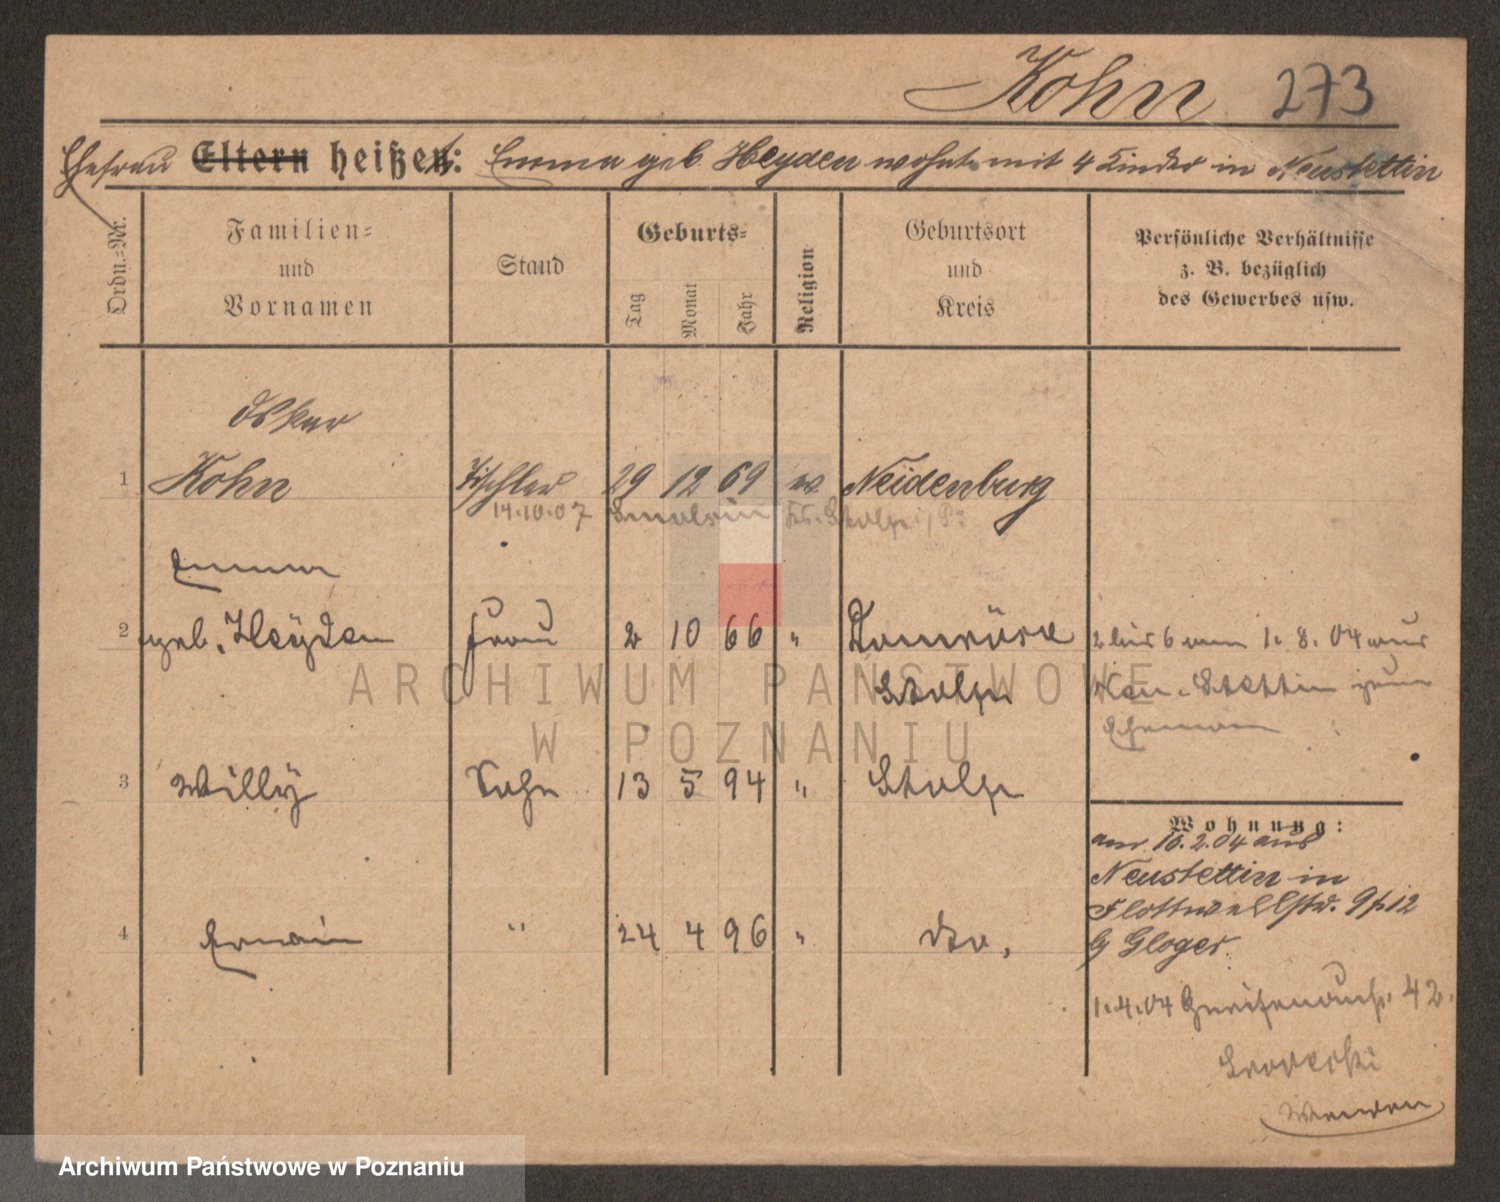 Kohn 273
Ehefrau Eltern heißen: Emma geb Heyden wohnt mit 4 Kinder in Neustettin
Ordn.-Nr.
Familien-
und
Vornamen
Stand
Geburts-
Tag
Monat
Jahr
Religion
Geburtsort
und
Kreis
Persönliche Verhältnisse
z. B. bezüglich
des Gewerbes usw.
Oskar
1 Kohn Tischler 29 12 69 Neidenburg
14.10.07 Stolp i/P.
Emma
2 geb. Heyden Frau 2 10 66 " 2 bis 6 am 1. 8. 04 aus
Stolp Neu-Stettin zum
Ehemann
3 Willy Sohn 13 5 94 " Stolp
Wohnung:
am 16.2.04 aus
Neustettin in
Flottwellstr. 9 p. 12
b Gloger.
4 Erwin " 24 4 96 " do.
1.4.04 42.
Wenden
ARCHIWUM PAŃSTWOWE
W POZNANIU
Archiwum Państwowe w Poznaniu